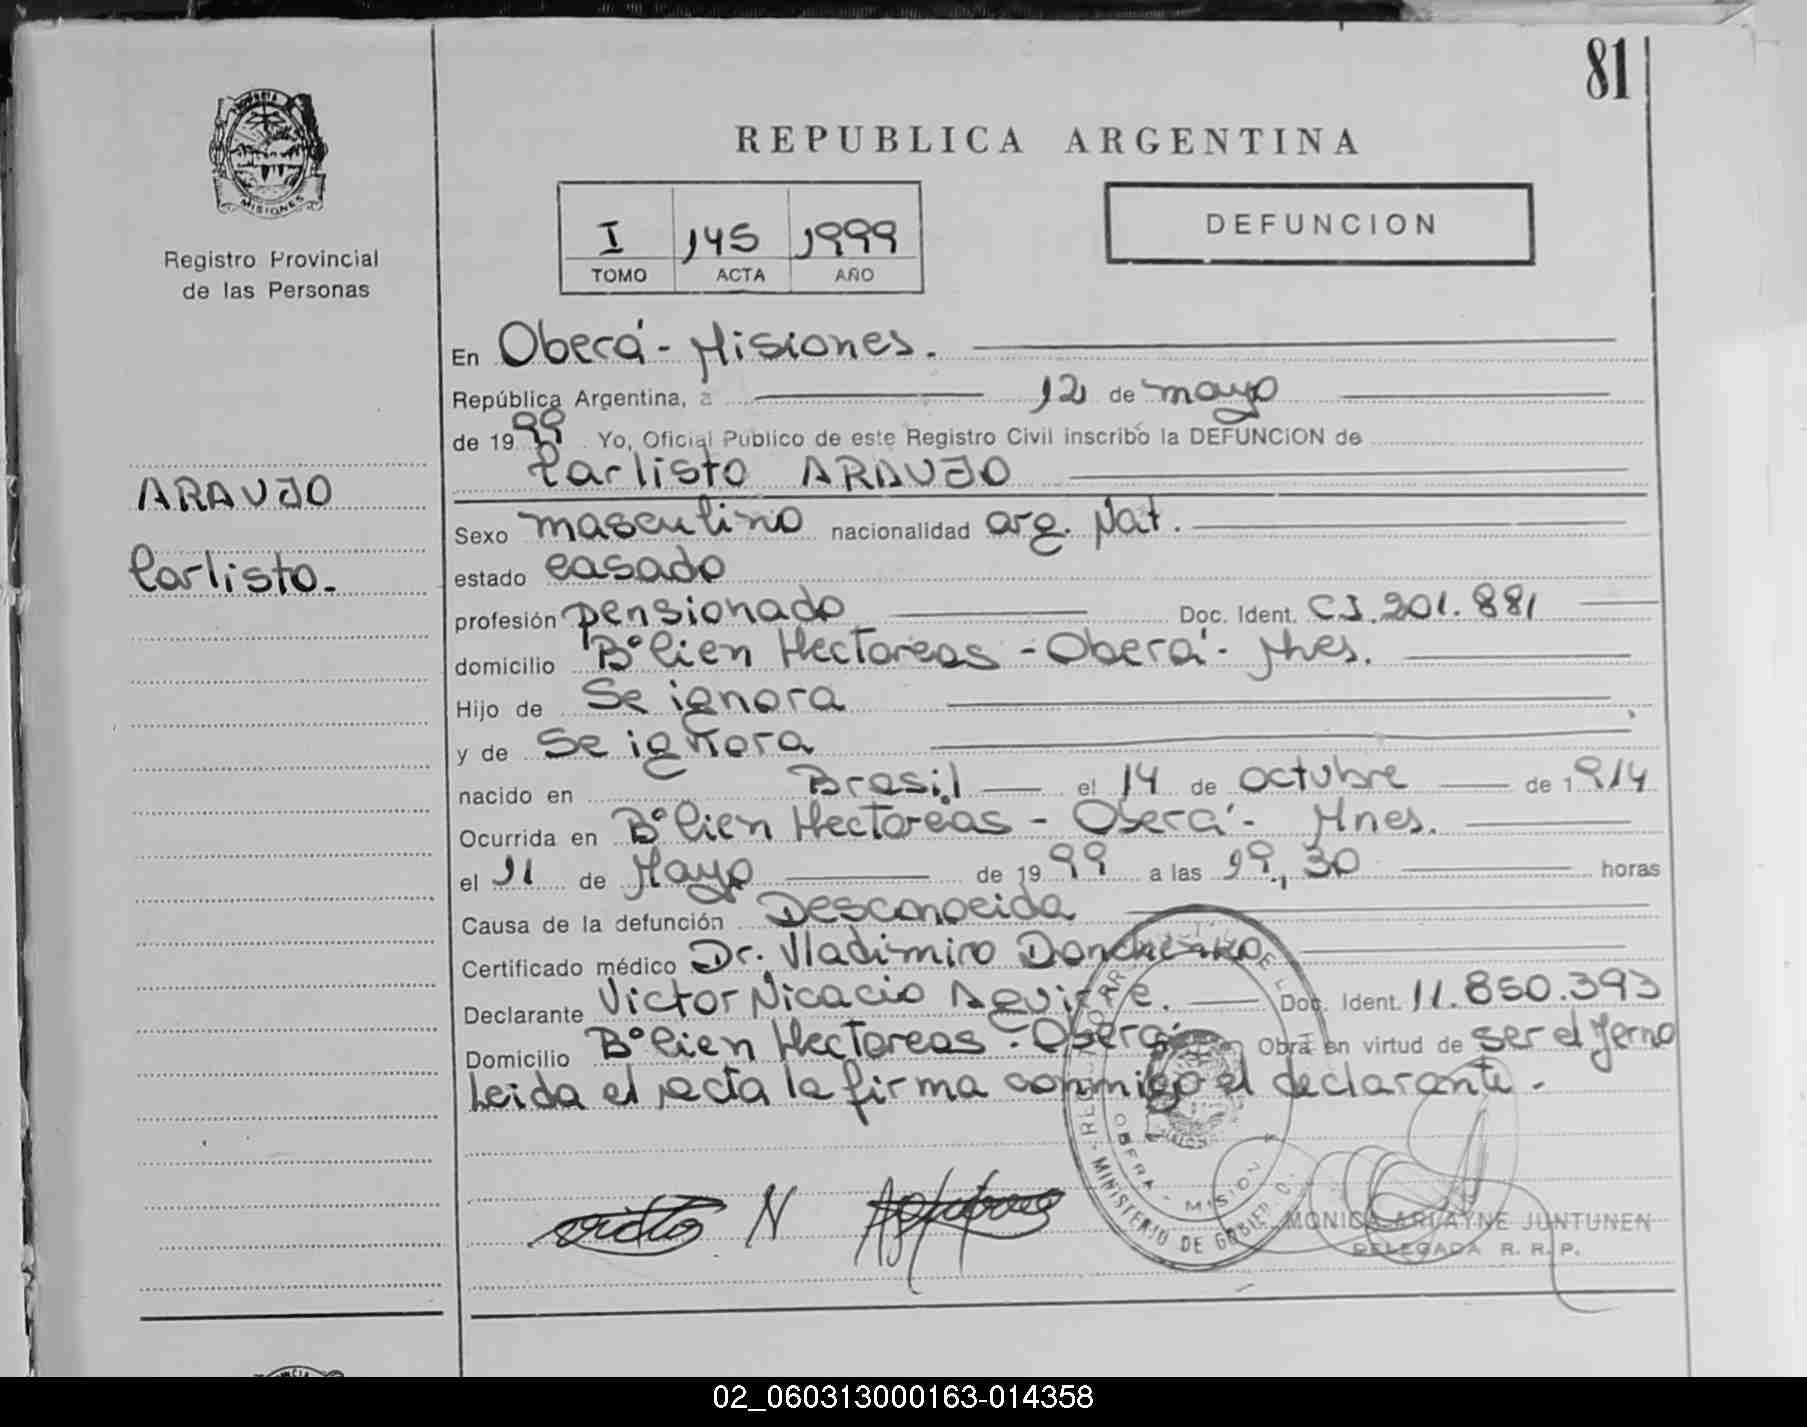 81
REPUBLICA ARGENTINA
PROVINCIA
MISIONES
Registro Provincial
de las Personas
I 145 1999
TOMO ACTA AÑO
DEFUNCION
En Oberá - Misiones.
República Argentina, a 12 de mayo
de 1999. Yo, Oficial Publico de este Registro Civil inscribo la DEFUNCION de
Carlisto ARAUJO
ARAUJO
Carlisto.-
Sexo masculino nacionalidad arg. Nat.
estado casado
profesión pensionado Doc. Ident. C.I. 201.881
domicilio B° Cien Hectareas - Oberá - Mnes.
Hijo de Se ignora
y de Se ignora
nacido en Brasil el 14 de octubre de 1914
Ocurrida en B° Cien Hectareas - Oberá - Mnes.
el 11 de Mayo de 1999 a las 19,30 horas
Causa de la defunción Desconocida
Certificado médico Dr. Vladimiro Donchenko
Declarante Victor Nicacio Aguirre. Doc. Ident. 11.850.393
Domicilio B° Cien Hectareas - Oberá Obra en virtud de ser el yerno
Leida el acta la firma conmigo el declarante.-
MINISTERIO DE GOBIER
OBERA - MISION
MONICA ARIAYNE JUNTUNEN
DELEGADA R. R. P.
02_060313000163-014358